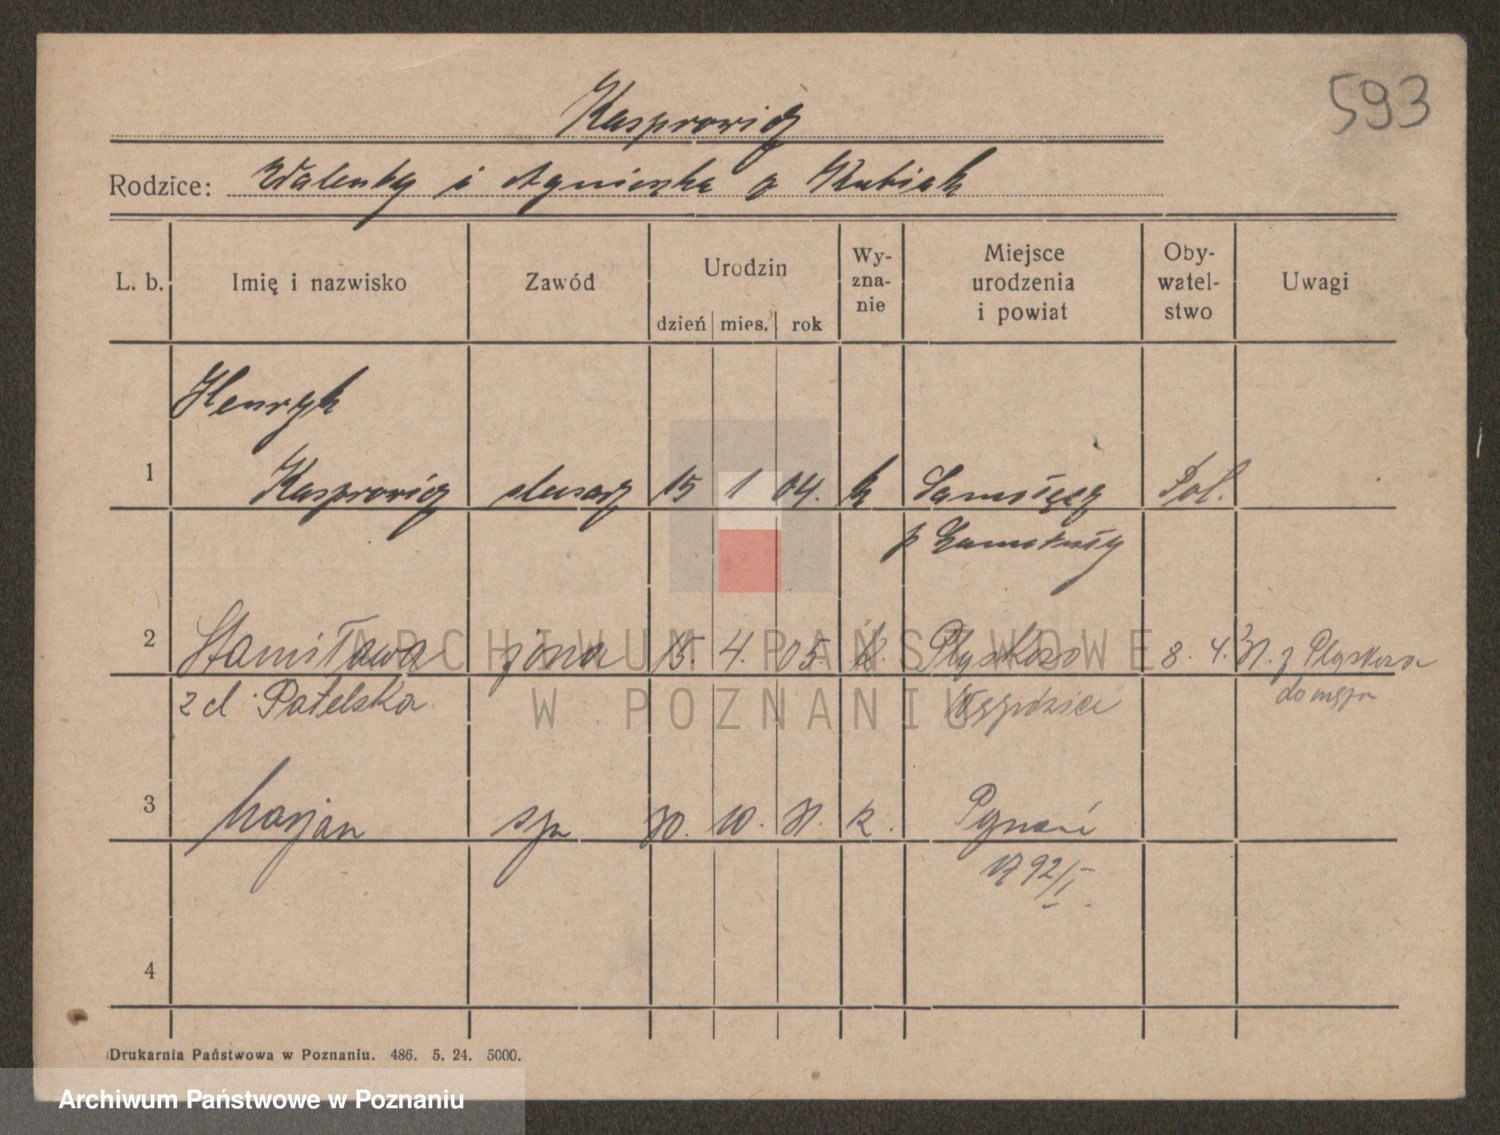 593
Kasprowicz
Rodzice: Walenty i Agnieszka z Kubiak
L. b. Imię i nazwisko Zawód Urodzin Wy-zna-nie Miejsce urodzenia i powiat Oby-watel-stwo Uwagi
dzień mies. rok
Henryk
1 Kasprowicz slusarz 15 1 04. k Pol.
p Szamotuły
2 Stanisława żona 15. 4. 05. k. 8. 4. 31. z
z d. Patelska do męża
3 Marjan syn 30. 10. 31. k. Poznań
92/I.
4
Drukarnia Państwowa w Poznaniu. 486. 5. 24. 5000.
ARCHIWUM PAŃSTWOWE
W POZNANIU
Archiwum Państwowe w Poznaniu